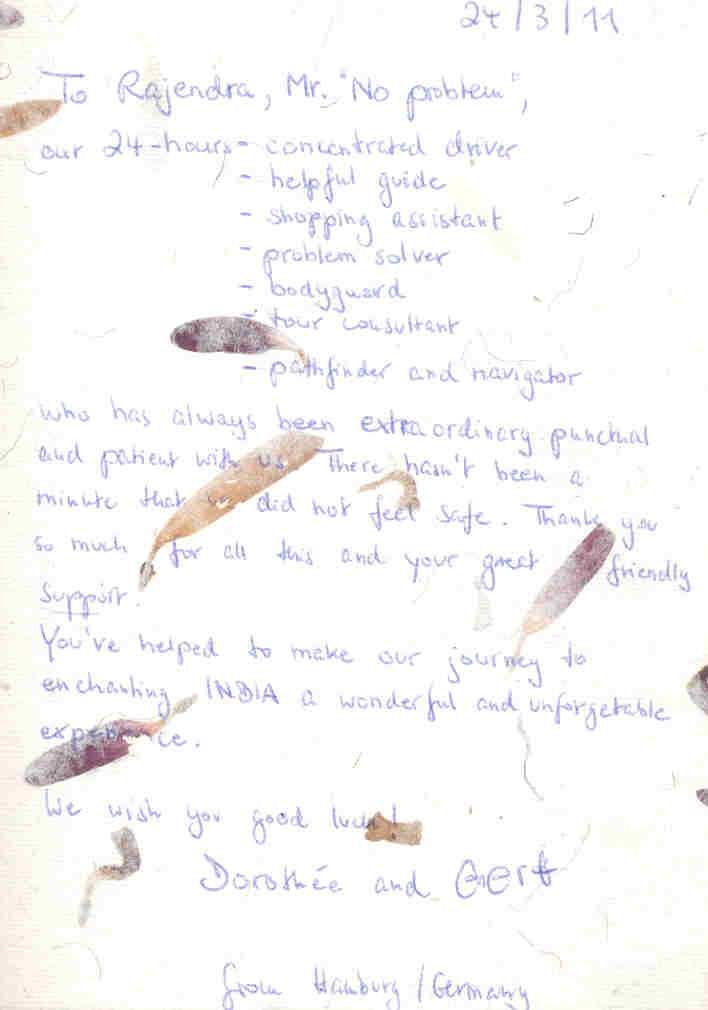 24/3/11
To Rajendra, Mr. "No problem",
our 24-hours - concentrated driver
- helpful guide
- shopping assistant
- problem solver
- bodyguard
- tour consultant
- pathfinder and navigator
who has always been extraordinary punctual
and patient with us. There hasn't been a
minute that we did not feel safe. Thank you
so much for all this and your great friendly
support.
You've helped to make our journey to
enchanting INDIA a wonderful and unforgetable
experience.
We wish you good luck!
Dorothée and Gert
from Hamburg / Germany